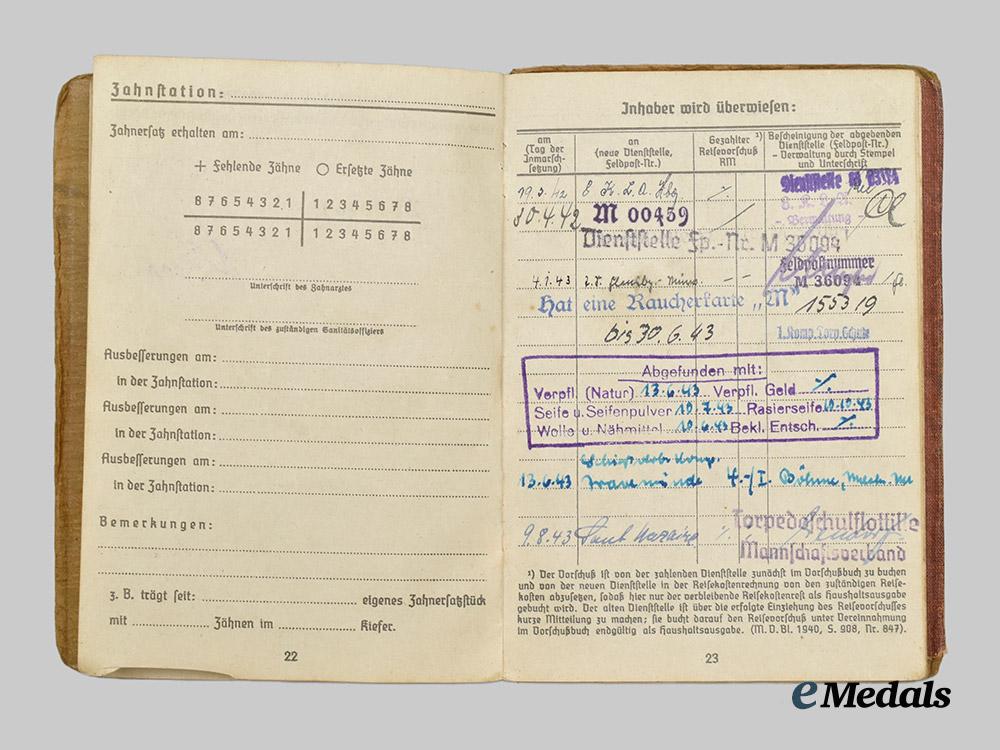 Zahnstation:
Zahnersatz erhalten am:
+ Fehlende Zähne ○ Ersetzte Zähne
8 7 6 5 4 3 2 1 | 1 2 3 4 5 6 7 8
8 7 6 5 4 3 2 1 | 1 2 3 4 5 6 7 8
Unterschrift des Zahnarztes
Unterschrift des zuständigen Sanitätsoffiziers
Ausbesserungen am:
in der Zahnstation:
Ausbesserungen am:
in der Zahnstation:
Ausbesserungen am:
in der Zahnstation:
Bemerkungen:
z. B. trägt seit: eigenes Zahnersatzstück
mit Zähnen im Kiefer.
22
Inhaber wird überwiesen:
am
(Tag der
Inmarsch-
setzung)
an
(neue Dienststelle,
Feldpost-Nr.)
Gezahlter ¹)
Reisevorschuß
RM
Bescheinigung der abgebenden
Dienststelle (Feldpost-Nr.)
– Verwaltung durch Stempel
und Unterschrift
19.3.42
Dienststelle
- Verwaltung -
30.4.42 M 00439
Dienststelle Fp.-Nr. M 36094
Feldpostnummer
4.1.43 M 36094
Hat eine Raucherkarte „M" 155319
bis 30.6.43 1. Komp. Torp. Schule
Abgefunden mit:
Verpfl. (Natur) 13.6.43 Verpfl. Geld
Seife u. Seifenpulver 10.7.43 Rasierseife 10.10.43
Wolle u. Nähmittel 10.6.43 Bekl. Entsch.
13.6.43 Travemünde 4.-/I. Böhme,
Torpedoschulflottille
9.8.43
Mannschaftsverband
¹) Der Vorschuß ist von der zahlenden Dienststelle zunächst im Vorschußbuch zu buchen
und von der neuen Dienststelle in der Reisekostenrechnung von den zuständigen Reise-
kosten abzusetzen, sodaß hier nur der verbleibende Reisekostenrest als Haushaltsausgabe
gebucht wird. Der alten Dienststelle ist über die erfolgte Einziehung des Reisevorschusses
kurze Mitteilung zu machen; sie bucht darauf den Reisevorschuß unter Vereinnahmung
im Vorschußbuch endgültig als Haushaltsausgabe. (M. D. Bl. 1940, S. 908, Nr. 847).
23
eMedals